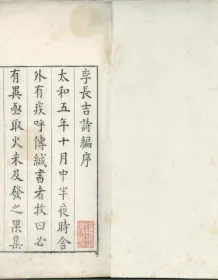 李長吉詩編序
太和五年十月中半夜時舍
外有疾呼傳緘書者牧曰必
有異亟取火來及發之果集